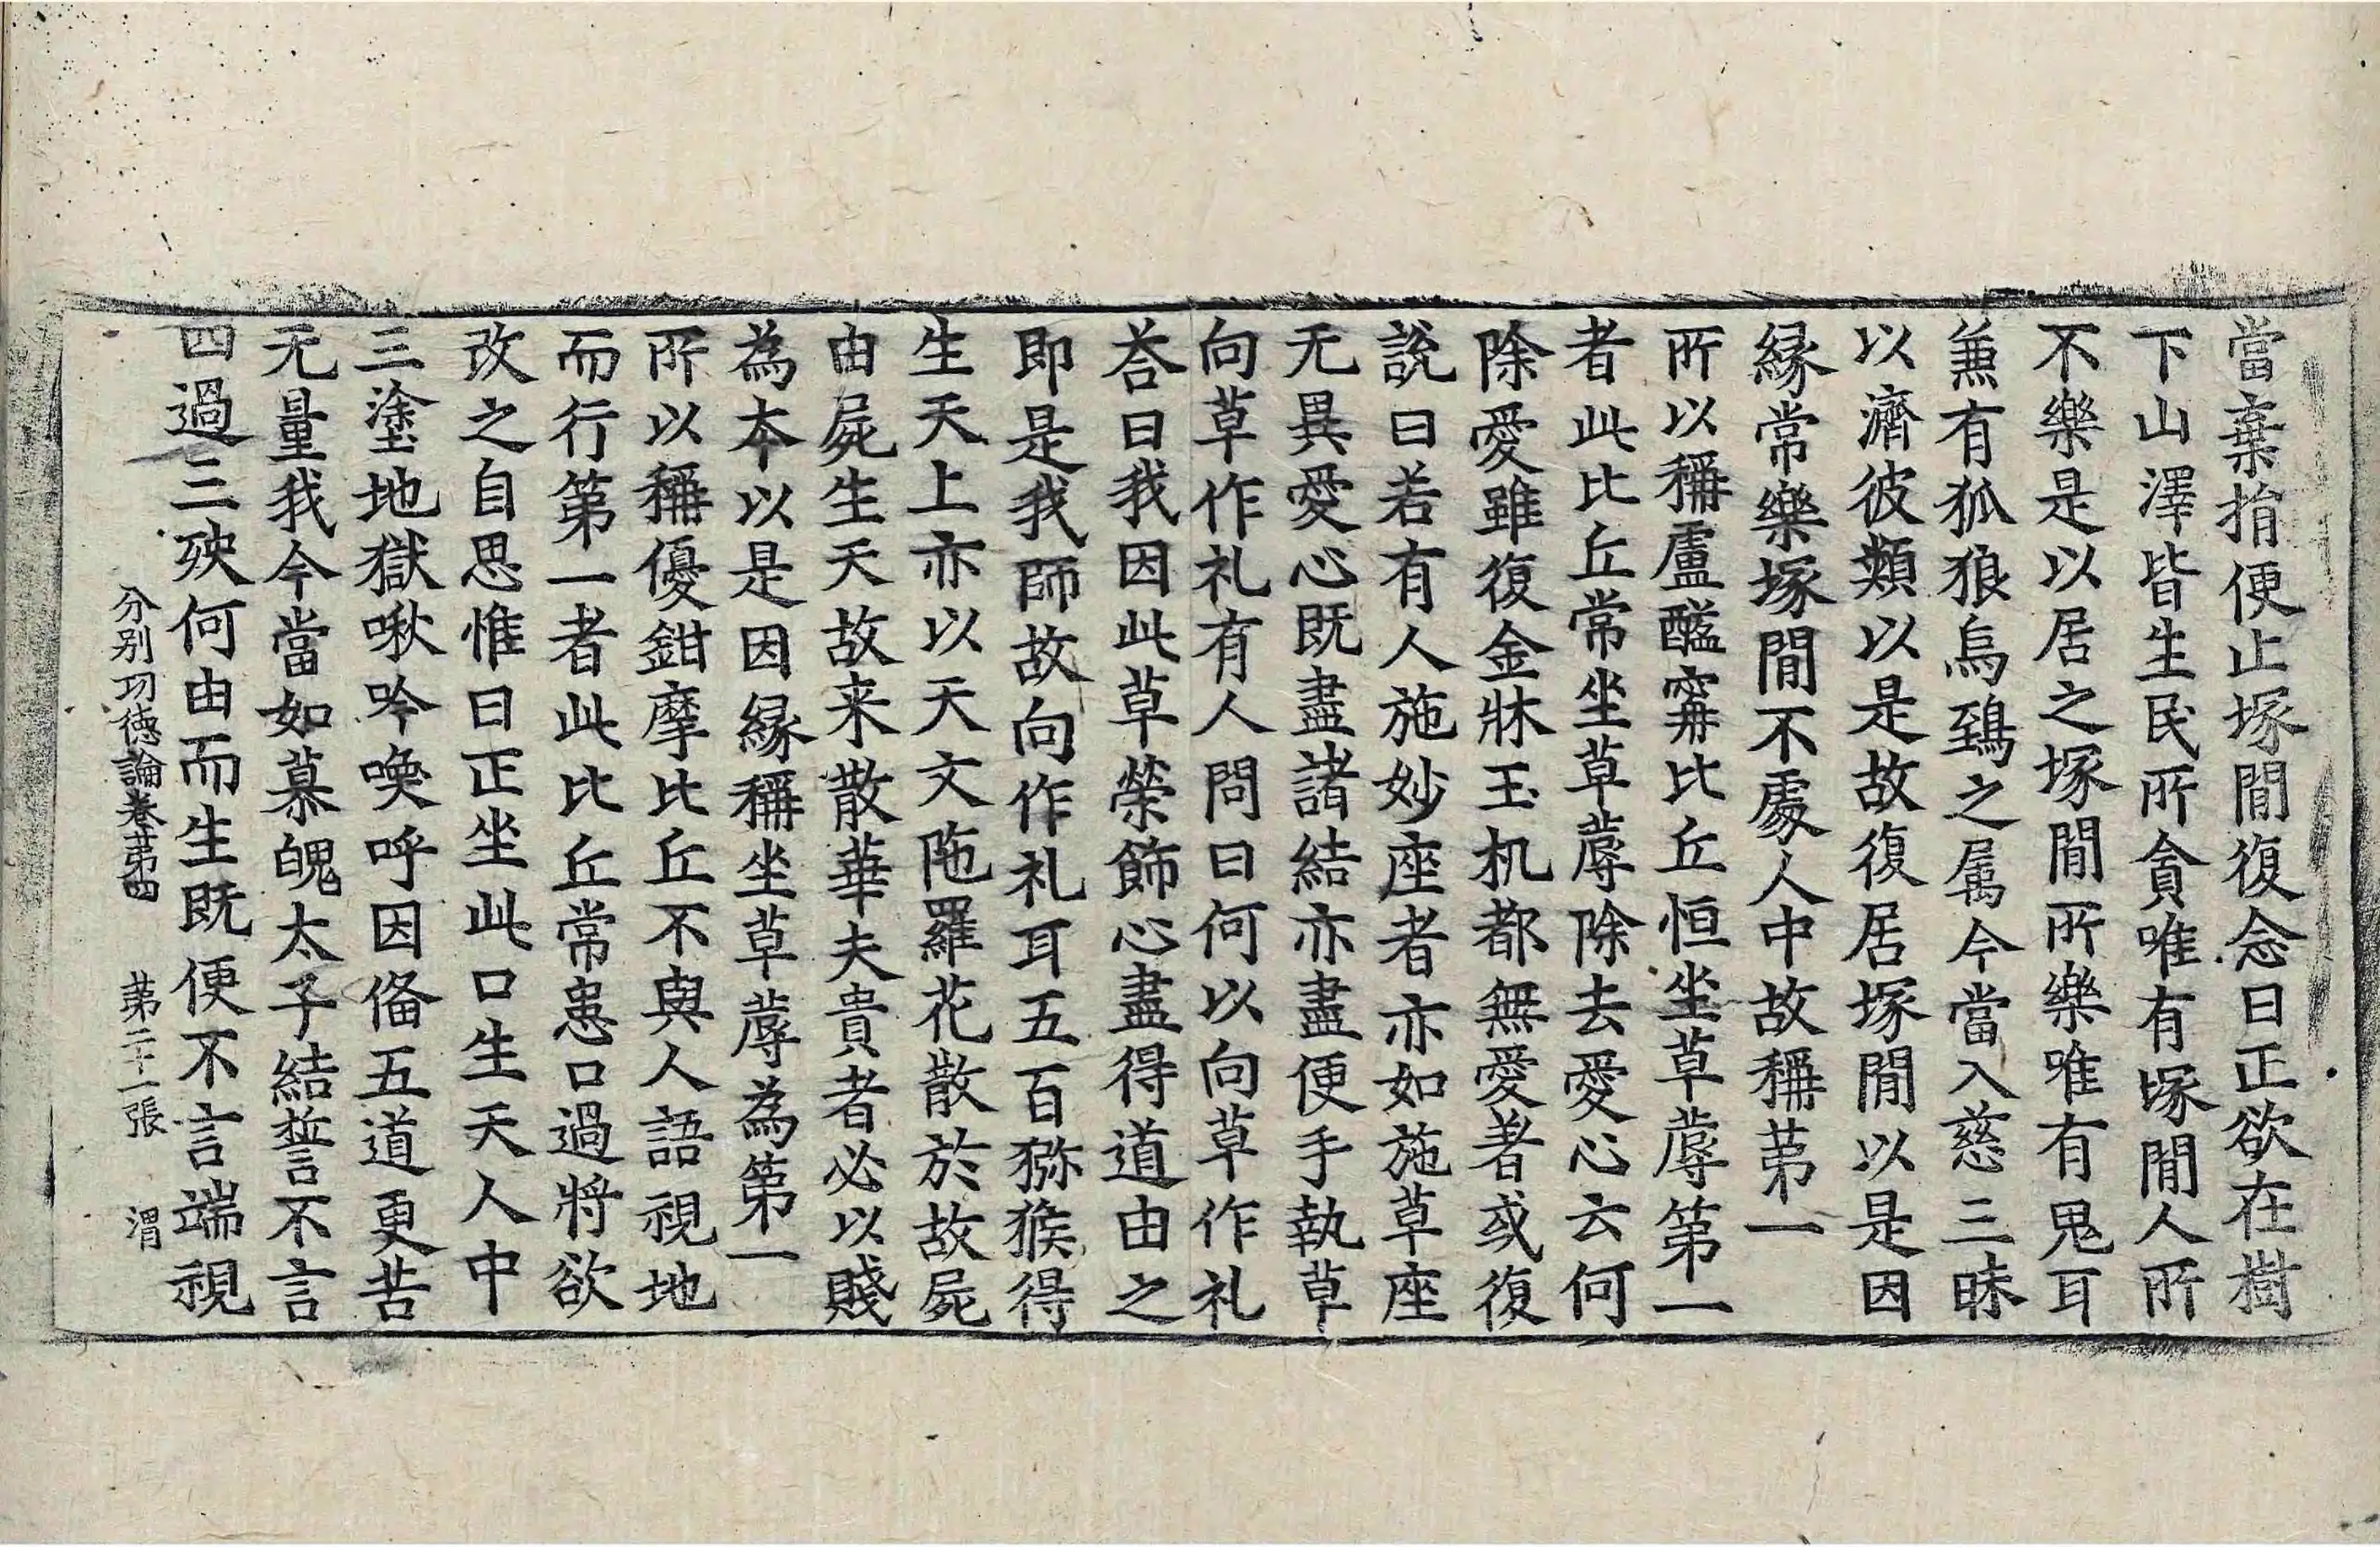 當棄捐便止塚閒復念曰正欲在樹
下山澤皆生民所貪唯有塚閒人所
不樂是以居之塚閒所樂唯有鬼耳
兼有狐狼烏鵄之屬今當入慈三昧
以濟彼類以是故復居塚閒以是因
緣常樂塚閒不處人中故稱苐一
所以稱盧醯甯比丘恒坐草蓐第一
者此比丘常坐草蓐除去愛心云何
除愛雖復金牀玉机都無愛著或復
說曰若有人施妙座者亦如施草座
无異愛心既盡諸結亦盡便手執草
向草作礼有人問曰何以向草作礼
荅曰我因此草榮飾心盡得道由之
即是我師故向作礼耳五百獼猴得
生天上亦以天文陁羅花散於故屍
由屍生天故来散華夫貴者必以賤
為本以是因緣稱坐草蓐為第一
所以稱優鉗摩比丘不與人語視地
而行第一者此比丘常患口過將欲
改之自思惟曰正坐此口生天人中
三塗地獄啾吟喚呼因俻五道更苦
无量我今當如慕魄太子結誓不言
四過三殃何由而生既便不言端視
分別功德論卷苐四 苐二十一張 渭